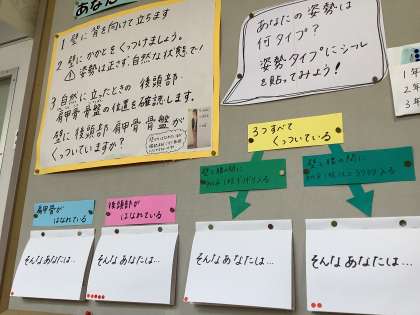 あなた
1 壁に背を向けて立ちます
2 壁にかかとをくっつけましょう。
⚠ 姿勢は正さず、自然な状態で!
3 自然に立ったときの 後頭部
肩甲骨 骨盤の位置を確認します。
壁に後頭部 肩甲骨 骨盤が
くっついていますか?
あなたの姿勢は
何タイプ?
姿勢タイプにシール
を貼ってみよう!
1年
2年
3年
3つすべて
くっついている
壁と腰の間に
壁と腰の間に
肩甲骨が
はなれている
後頭部が
はなれている
そんなあなたは…
そんなあなたは…
そんなあなたは…
そんなあなたは…